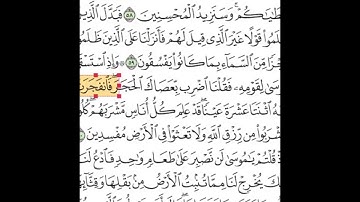 طَٰيَٰكُمْ ۚ وَسَنَزِيدُ ٱلْمُحْسِنِينَ ٥٨ فَبَدَّلَ ٱلَّذِينَ
لَمُوا۟ قَوْلًا غَيْرَ ٱلَّذِى قِيلَ لَهُمْ فَأَنزَلْنَا عَلَى ٱلَّذِينَ ظَلَمُوا۟
جْزًا مِّنَ ٱلسَّمَآءِ بِمَا كَانُوا۟ يَفْسُقُونَ ٥٩ وَإِذِ ٱسْتَسْقَ
سَىٰ لِقَوْمِهِۦ فَقُلْنَا ٱضْرِب بِّعَصَاكَ ٱلْحَجَرَ فَٱنفَجَرَتْ
هُ ٱثْنَتَا عَشْرَةَ عَيْنًا ۖ قَدْ عَلِمَ كُلُّ أُنَاسٍ مَّشْرَبَهُمْ ۖ كُلُوا۟
شْرَبُوا۟ مِن رِّزْقِ ٱللَّهِ وَلَا تَعْثَوْا۟ فِى ٱلْأَرْضِ مُفْسِدِينَ
ذْ قُلْتُمْ يَٰمُوسَىٰ لَن نَّصْبِرَ عَلَىٰ طَعَامٍ وَٰحِدٍ فَٱدْعُ لَنَا
كَ يُخْرِجْ لَنَا مِمَّا تُنۢبِتُ ٱلْأَرْضُ مِنۢ بَقْلِهَا وَقِثَّآئِهَا